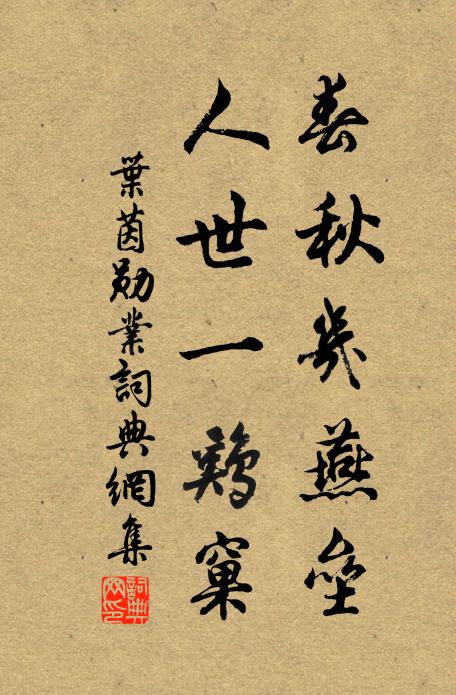 春秋幾燕垒
人世一鷄窠
葉茵勛業詞典網集
詞典
网印